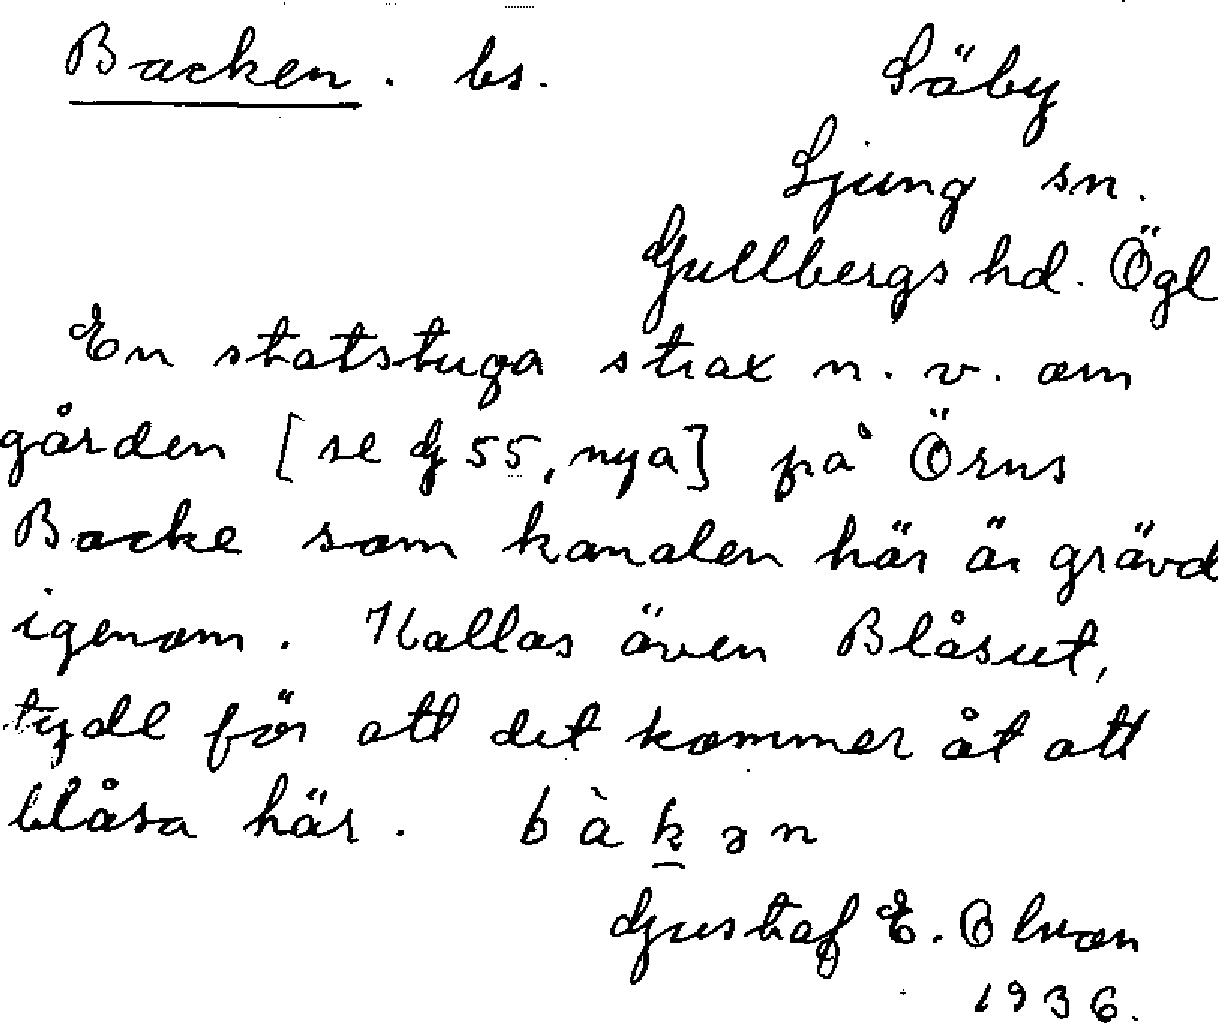 Backen. bs. Säby
Ljung sn.
Gullbergs hd. Ögl
En statstuga strax n. v. om
gården [se G 55, nya] på Örns
Backe som kanalen här är grävd
igenom. Kallas även Blåsut,
tydl för att det kommer åt att
blåsa här. b à k ə n
Gustaf E. Olson
1936.